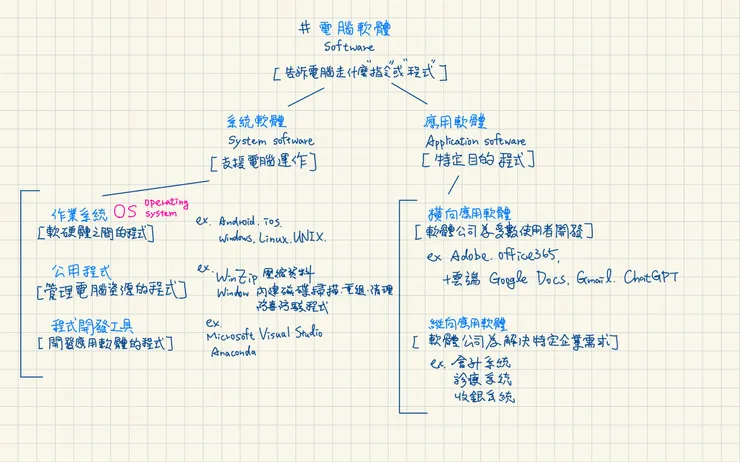 # 電腦軟體
Software
[告訴電腦走什麼"指令"或"程式"]
系統軟體
System software
[支援電腦運作]
作業系統 OS operating system
[軟硬體之間的程式]
ex. Android. ios.
Windows, Linux. UNIX.
公用程式
[管理電腦資源的程式]
ex.
WinZip 壓縮資料
Window 內建磁碟掃描.重組.清理
程式
程式開發工具
[開發應用軟體的程式]
ex.
Microsoft Visual Studio
Anaconda
應用軟體
Application software
[特定目的程式]
橫向應用軟體
[軟體公司為多數使用者開發]
ex Adobe. office365.
+雲端 Google Docs. Gmail. ChatGPT
縱向應用軟體
[軟體公司為解決特定企業需求]
ex. 會計系統
診療系統
收銀系統